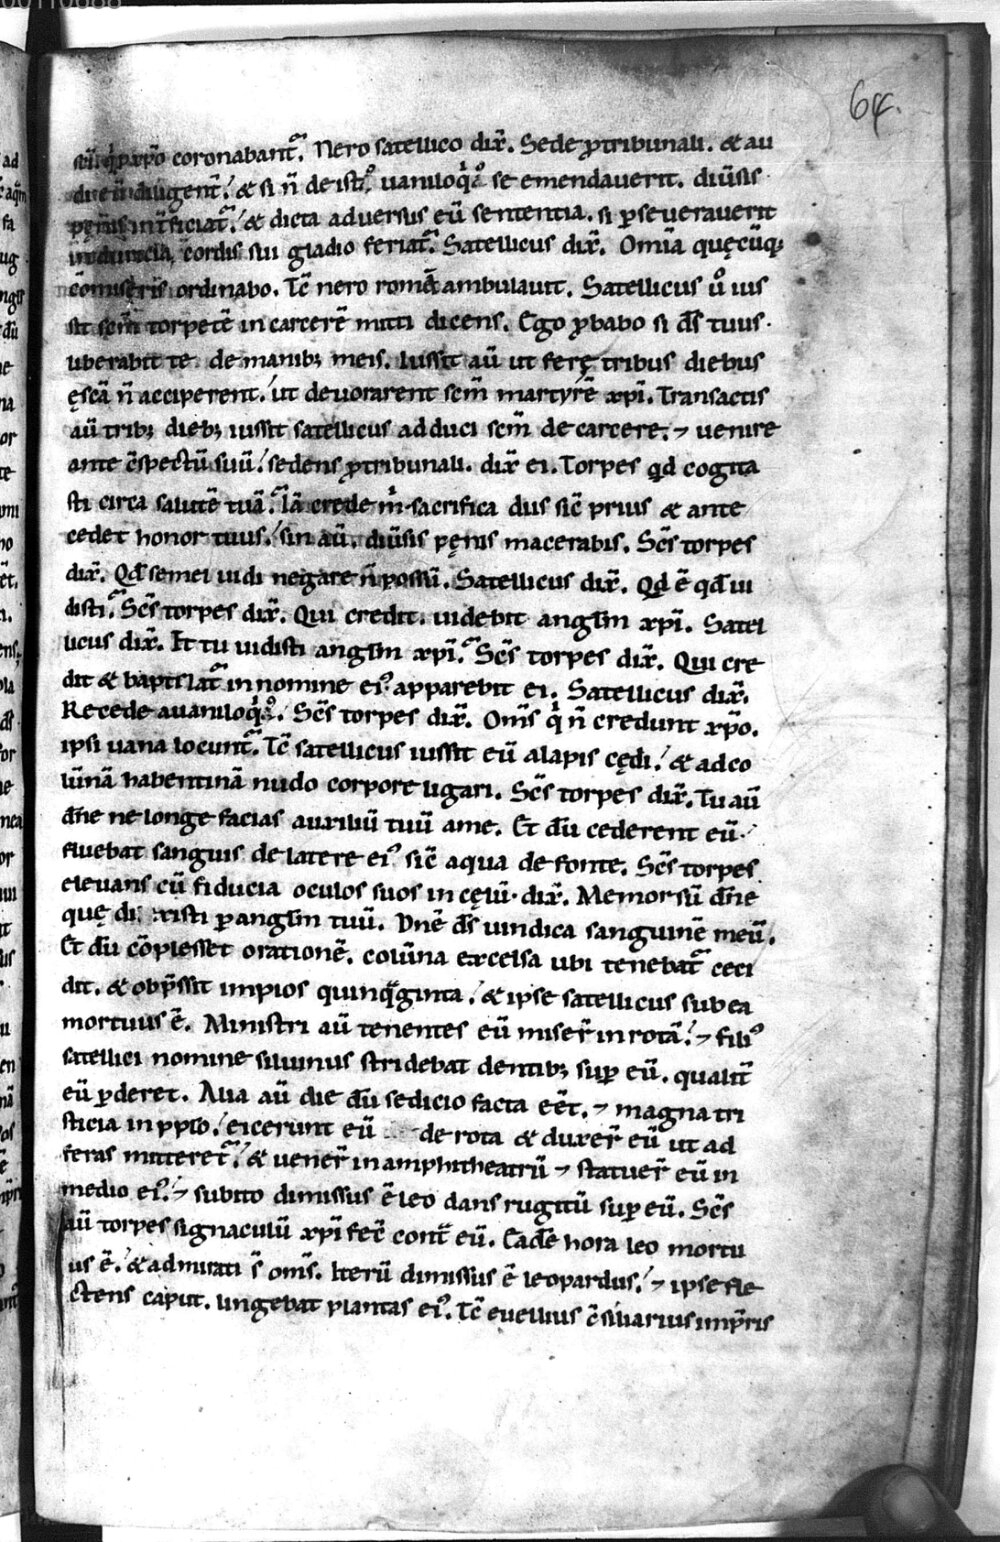 64.
coronabant᷑. Nero satellico dix̄. Sede ꝓtribunali. & au
di eū diligent̄. & si n̄ de isto᷒ uaniloq̇o᷒ se emendauerit. diūsis
pęnis int̄ficiat᷑. & dicta aduersus eū sententia. si ꝑseuerauerit
in duricia cordis sui gladio feriat᷑. Satellicus dix̄. Om̄ia quęcūq;
cōmiseris ordinabo. Tc̄ nero romā ambulauit. Satellicus ů ius
sit sc̄m torpetē in carcerē mitti dicens. Ego ꝓbabo si d̄s tuus
liberabit te de manib; meis. Iussit aū ut ferę tribus diebus
ęscā n̄ acciperent. ut deuorarent sc̄m martyrē xp̄i. Transactis
aū trib; dieb; iussit satellicus adduci sc̄m de carcere. ⁊ uenire
ante c̄spectū suū. sedens ꝓtribunali. dix̄ ei. Torpes qd cogita
sti circa salutē tuā. Iā crede m̄. sacrifica dus sic̄ prius & ante
cedet honor tuus. sin aū. diūsis pęnis macerabis. Sc̄s torpes
dix̄. Qđ semel uidi negare n̄ possū. Satellicus dix̄. Qd ē qđ ui
disti. Sc̄s torpes dix̄. Qui credit. uidebit anglm̄ xp̄i. Satel
licus dix̄. Et tu uidisti anglm̄ xp̄i. Sc̄s torpes dix̄. Qui cre
dit & baptizat᷑ in nomine ei᷒ apparebit ei. Satellicus dix̄.
Recede a uaniloq̇o᷒. Sc̄s torpes dix̄. Om̄s q̇ n̄ credunt xp̄o.
ipsi uana locunt᷑. Tc̄ satellicus iussit eū alapis cędi. & ad co
lūnā habentinā nudo corpore ligari. Sc̄s torpes dix̄. Tu aū
dn̄e ne longe facias auxiliū tuū a me. Et dū cederent eū.
fluebat sanguis de latere ei᷒ sic̄ aqua de fonte. Sc̄s torpes
eleuans cū fiducia oculos suos in cęlū. dix̄. Memor sū dn̄e
quę di xisti ꝑ anglm̄ tuū. Dn̄e d̄s uindica sanguinē meū.
Et dū cōplesset orationē. coluna excelsa ubi tenebat᷑ ceci
dit. & obp̄ssit impios quinq̄ginta. & ipse satellicus sub ea
mortuus ē. Ministri aū tenentes eū miser̄ in rotā. ⁊ fili᷒
satellici nomine siluinus stridebat dentib; suꝑ eū. qualit̄
eū ꝑderet. Alia aū die dū sedicio facta eēt. ⁊ magna tri
sticia in pplo. eicerunt eū de rota & duxer̄ eū ut ad
feras mitteret᷑. & uener̄ in amphitheatrū ⁊ statuer̄ eū in
medio ei᷒. ⁊ subito dimissus ē leo dans rugitū suꝑ eū. Sc̄s
aū torpes signaculū xp̄i fec̄ cont̄ eū. Eadē hora leo mortu
us ē. & admirati s̄ om̄s. Iterū dimissus ē leopardus. ⁊ ipse fle
ctens caput. lingebat plantas ei᷒. Tc̄ euellius c̄siliarius imp̄ris